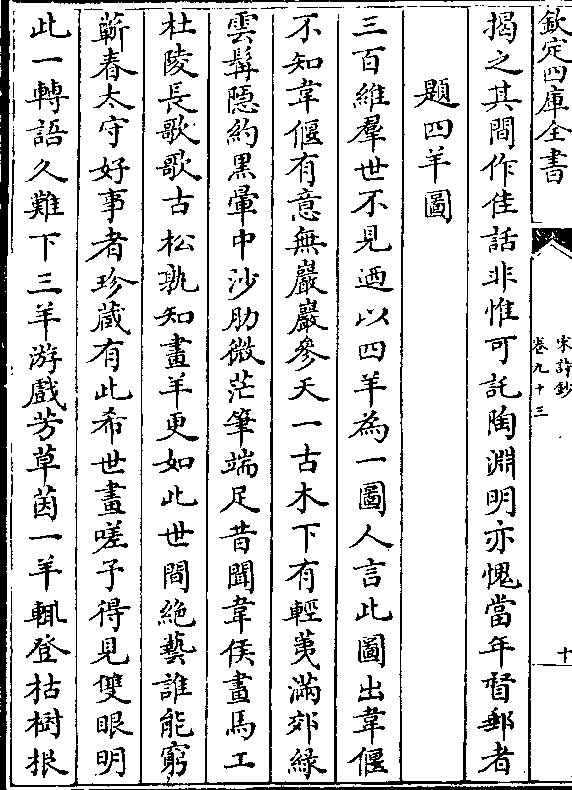 欽定四庫全書
宋詩鈔
卷九十三
十
揭之其間作佳話非惟可託陶淵明亦愧當年督郵者
題四羊圖
三百維羣世不見迺以四羊為一圖人言此圖出韋偃
不知韋偃有意無巖巖參天一古木下有輕荑滿郊緑
雲髯隠約黒暈中沙肋微茫筆端足昔聞韋侯畫馬工
杜陵長歌歌古松孰知畫羊更如此世間絶藝誰能窮
蘄春太守好事者珍藏有此希世畫嗟予得見雙眼明
此一轉語久難下三羊游戲芳草茵一羊輒登枯樹根